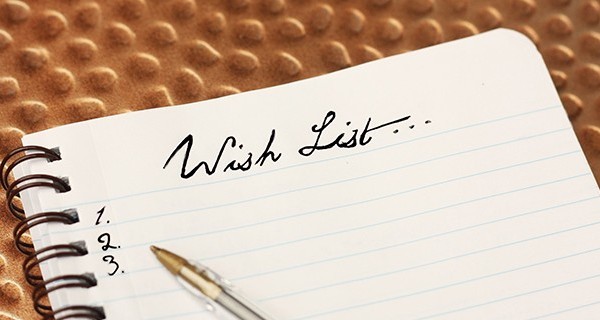 Wish List...
1.
2.
3.